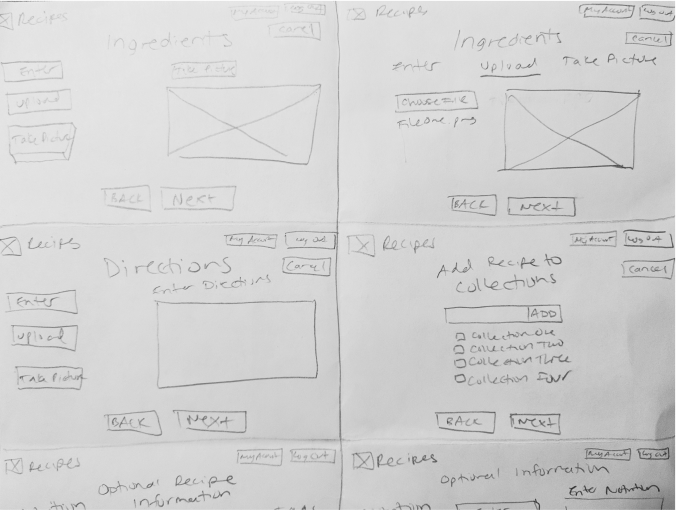 Recipes
My Account Log Out
Cancel
Ingredients
Enter
Upload
Take Picture
Take Picture
BACK Next
Recipes
My Account Log Out
Cancel
Ingredients
Enter Upload Take Picture
Choose File
File One.png
BACK Next
Recipes
My Account Log Out
Cancel
Directions
Enter Directions
Enter
Upload
Take Picture
BACK Next
Recipes
My Account Log Out
Cancel
Add Recipe to
Collections
ADD
Collection One
Collection Two
Collection Three
Collection Four
BACK Next
Recipes
My Account Log Out
Optional Recipe
Information
Recipes
My Account Log Out
Optional Information
Enter Nutrition